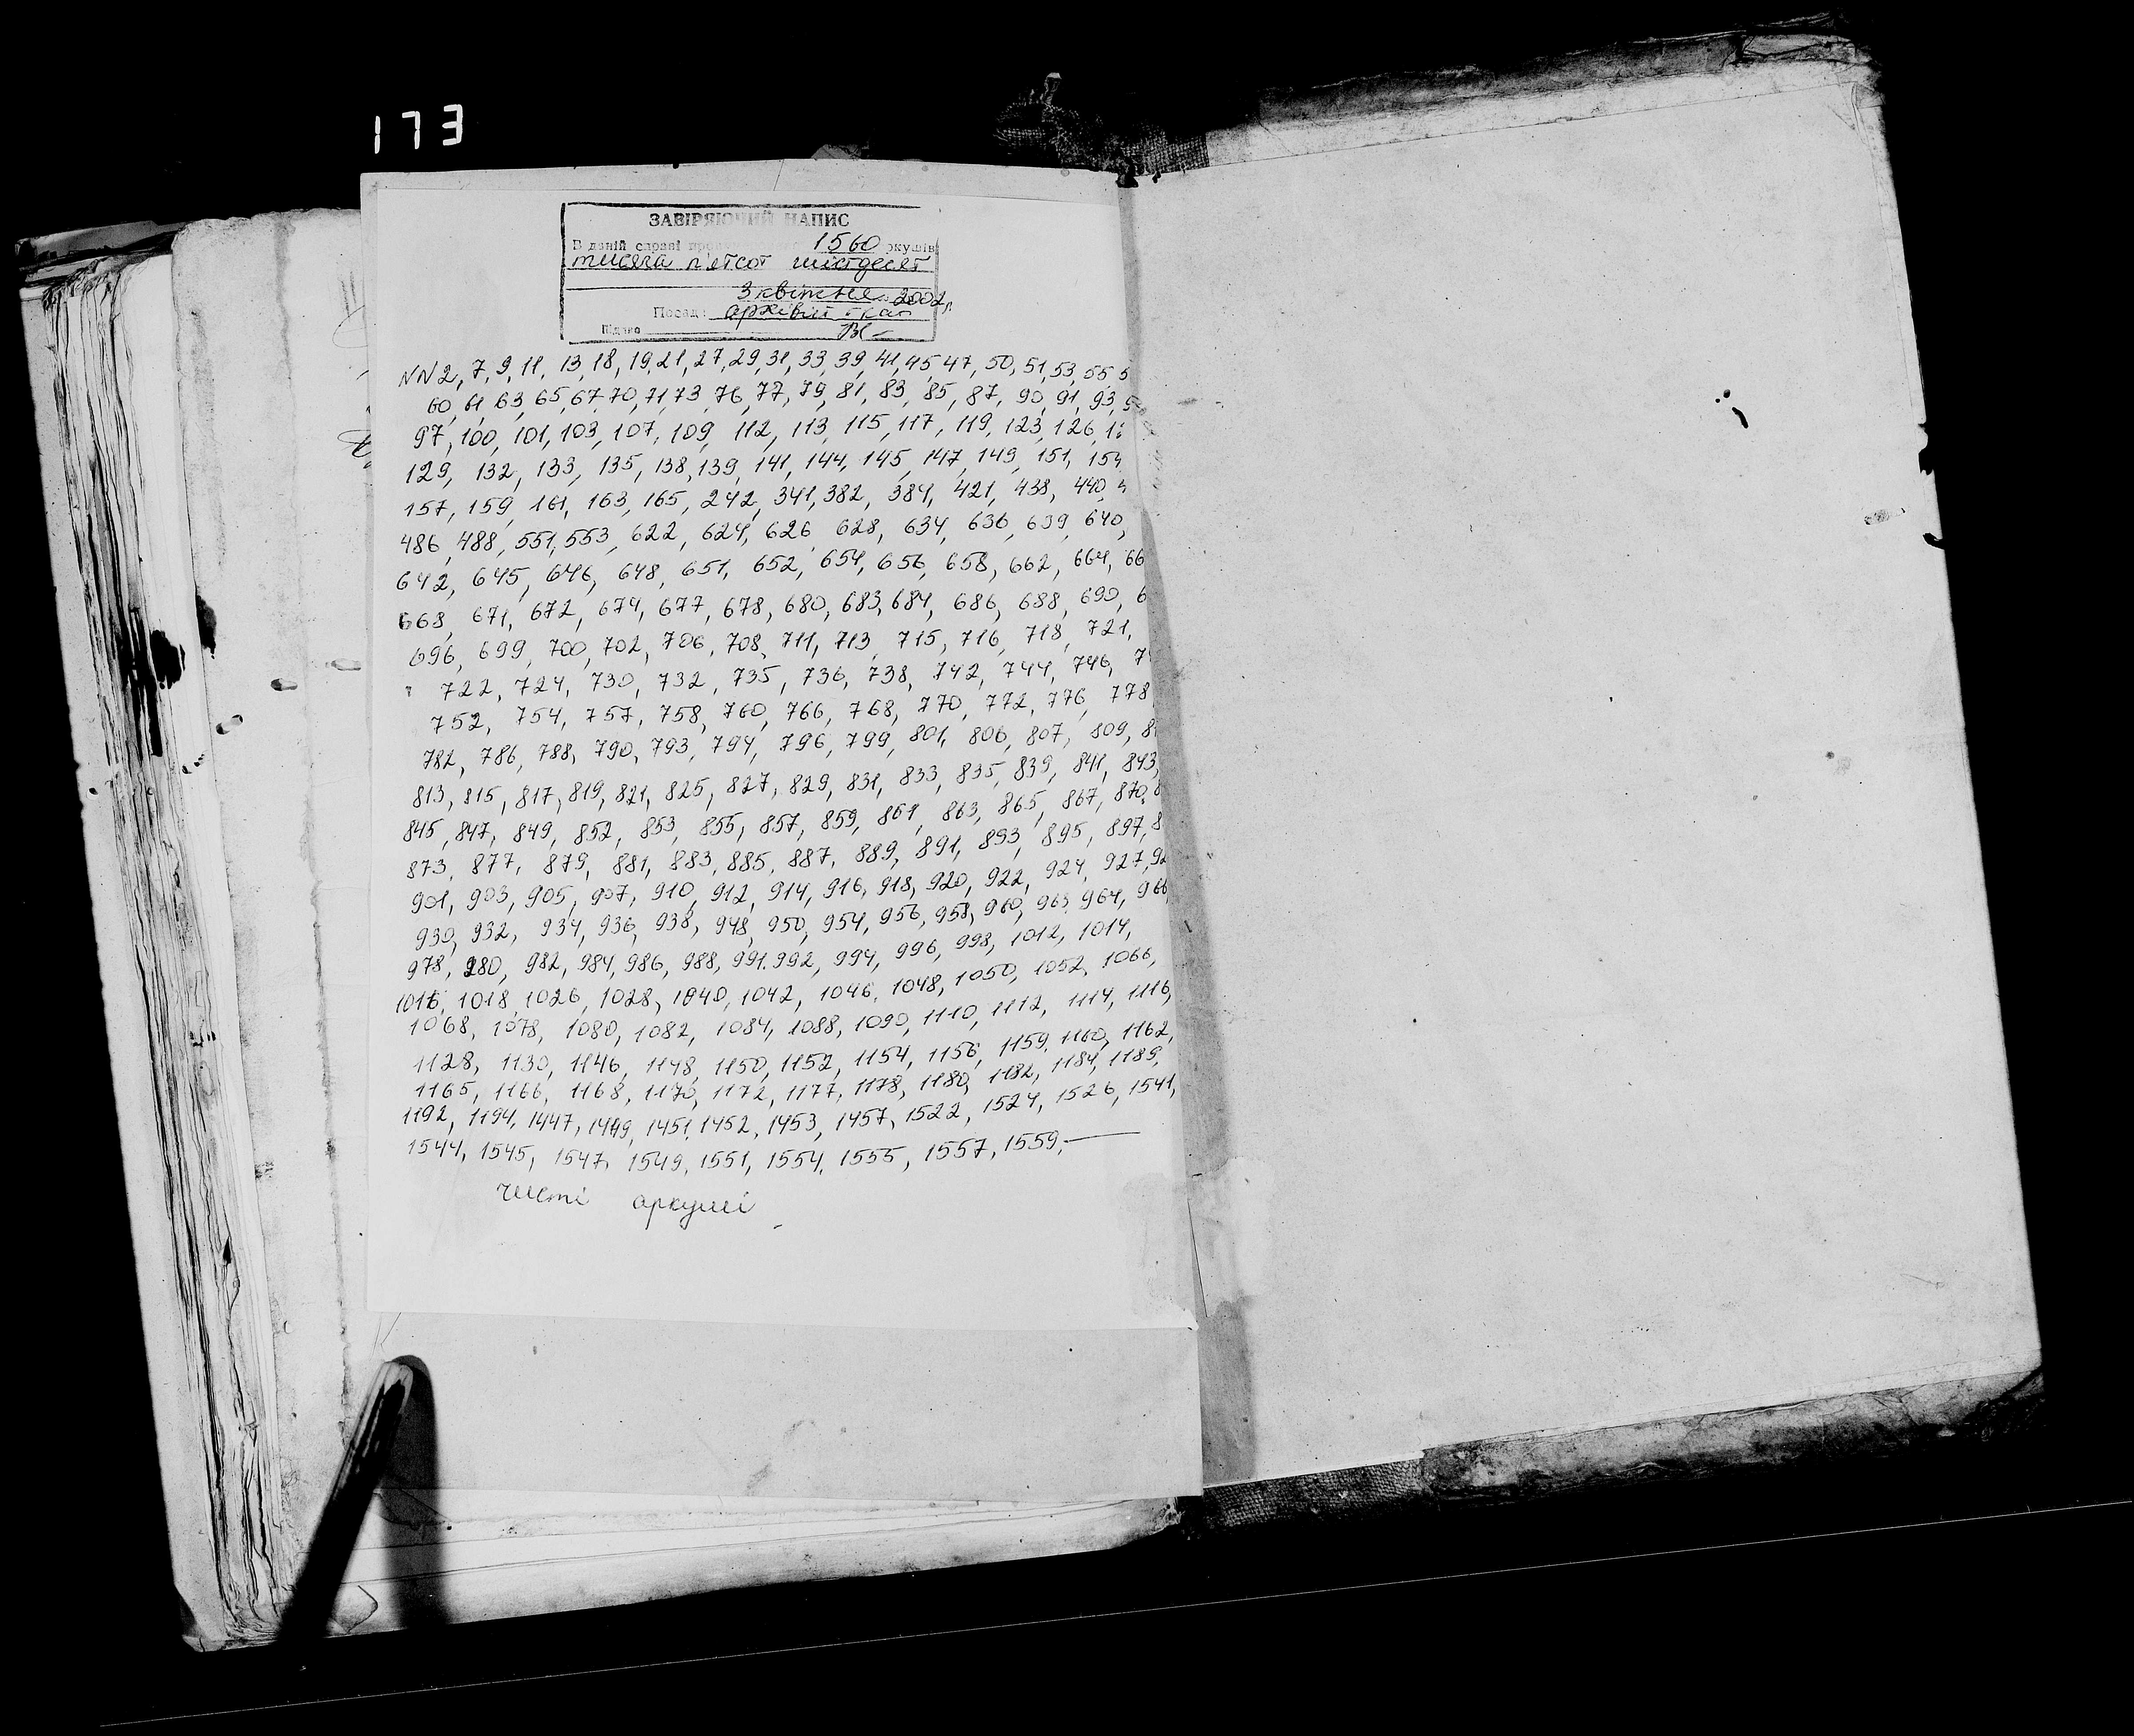 173
ЗАВІРЯЮЧИЙ НАПИС
В даній справі 1560 аркушів
тисяча п'ятсот шістдесят
3 квітня 2002 р.
Посада архівіст І кат
Підпис
NN 2, 7, 9, 11, 13, 18, 19, 21, 27, 29, 31, 33, 39, 41, 45, 47, 50, 51, 53, 55, 5
60, 61, 63, 65, 67, 70, 71, 73, 76, 77, 79, 81, 83, 85, 87, 90, 91, 93, 9
97, 100, 101, 103, 107, 109, 112, 113, 115, 117, 119, 123, 126, 12
129, 132, 133, 135, 138, 139, 141, 144, 145, 147, 149, 151, 154
157, 159, 161, 163, 165, 242, 341, 382, 384, 421, 438, 440, 4
486, 488, 551, 553, 622, 624, 626, 628, 634, 636, 639, 640,
642, 645, 646, 648, 651, 652, 654, 656, 658, 662, 664, 66
668, 671, 672, 674, 677, 678, 680, 683, 684, 686, 688, 690, 6
696, 699, 700, 702, 706, 708, 711, 713, 715, 716, 718, 721,
722, 724, 730, 732, 735, 736, 738, 742, 744, 746, 74
752, 754, 757, 758, 760, 766, 768, 770, 772, 776, 778
782, 786, 788, 790, 793, 794, 796, 799, 801, 806, 807, 809, 81
813, 815, 817, 819, 821, 825, 827, 829, 831, 833, 835, 839, 841, 843,
845, 847, 849, 852, 853, 855, 857, 859, 861, 863, 865, 867, 870, 8
873, 877, 879, 881, 883, 885, 887, 889, 891, 893, 895, 897, 8
901, 903, 905, 907, 910, 912, 914, 916, 918, 920, 922, 924, 927, 92
930, 932, 934, 936, 938, 948, 950, 954, 956, 958, 960, 963, 964, 966,
978, 980, 982, 984, 986, 988, 991, 992, 994, 996, 998, 1012, 1014,
1016, 1018, 1026, 1028, 1040, 1042, 1046, 1048, 1050, 1052, 1066,
1068, 1078, 1080, 1082, 1084, 1088, 1090, 1110, 1112, 1114, 1116,
1128, 1130, 1146, 1148, 1150, 1152, 1154, 1156, 1159, 1160, 1162,
1165, 1166, 1168, 1170, 1172, 1177, 1178, 1180, 1182, 1184, 1189,
1192, 1194, 1447, 1449, 1451, 1452, 1453, 1457, 1522, 1524, 1526, 1541,
1544, 1545, 1547, 1549, 1551, 1554, 1555, 1557, 1559, —
чисті аркуші